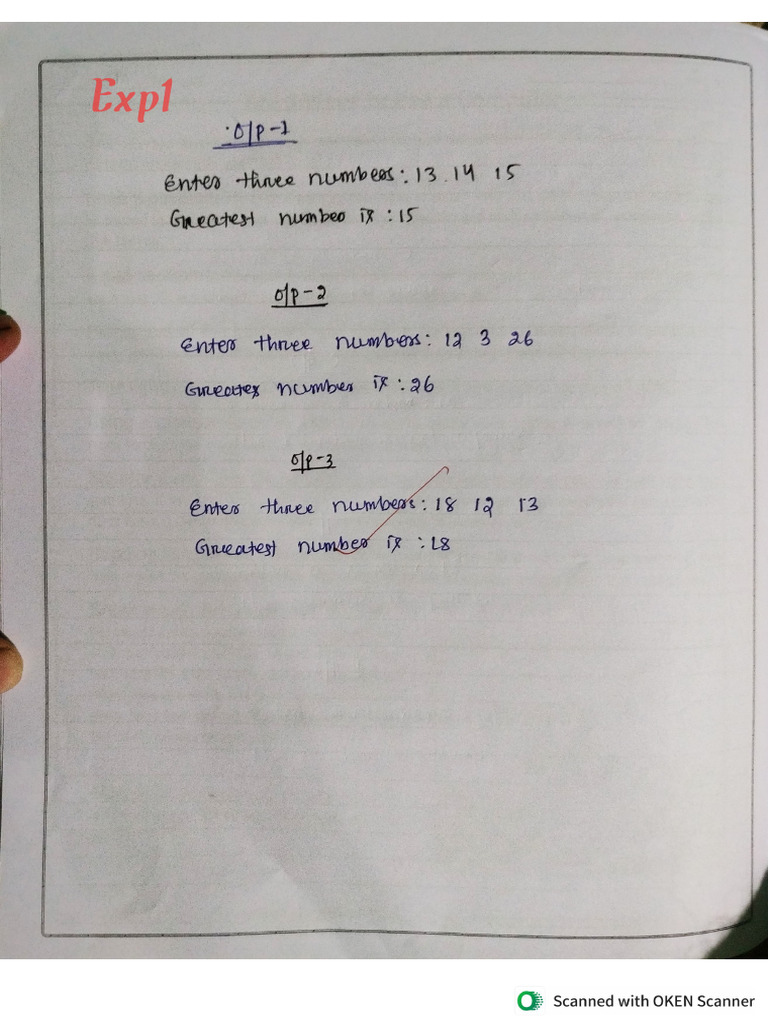 Exp1
O/P-1
Enter three numbers: 13 14 15
Greatest number is : 15
O/P-2
Enter three numbers: 12 3 26
Greates number is : 26
O/P-3
Enter three numbers: 18 12 13
Greatest number is : 18
Scanned with OKEN Scanner